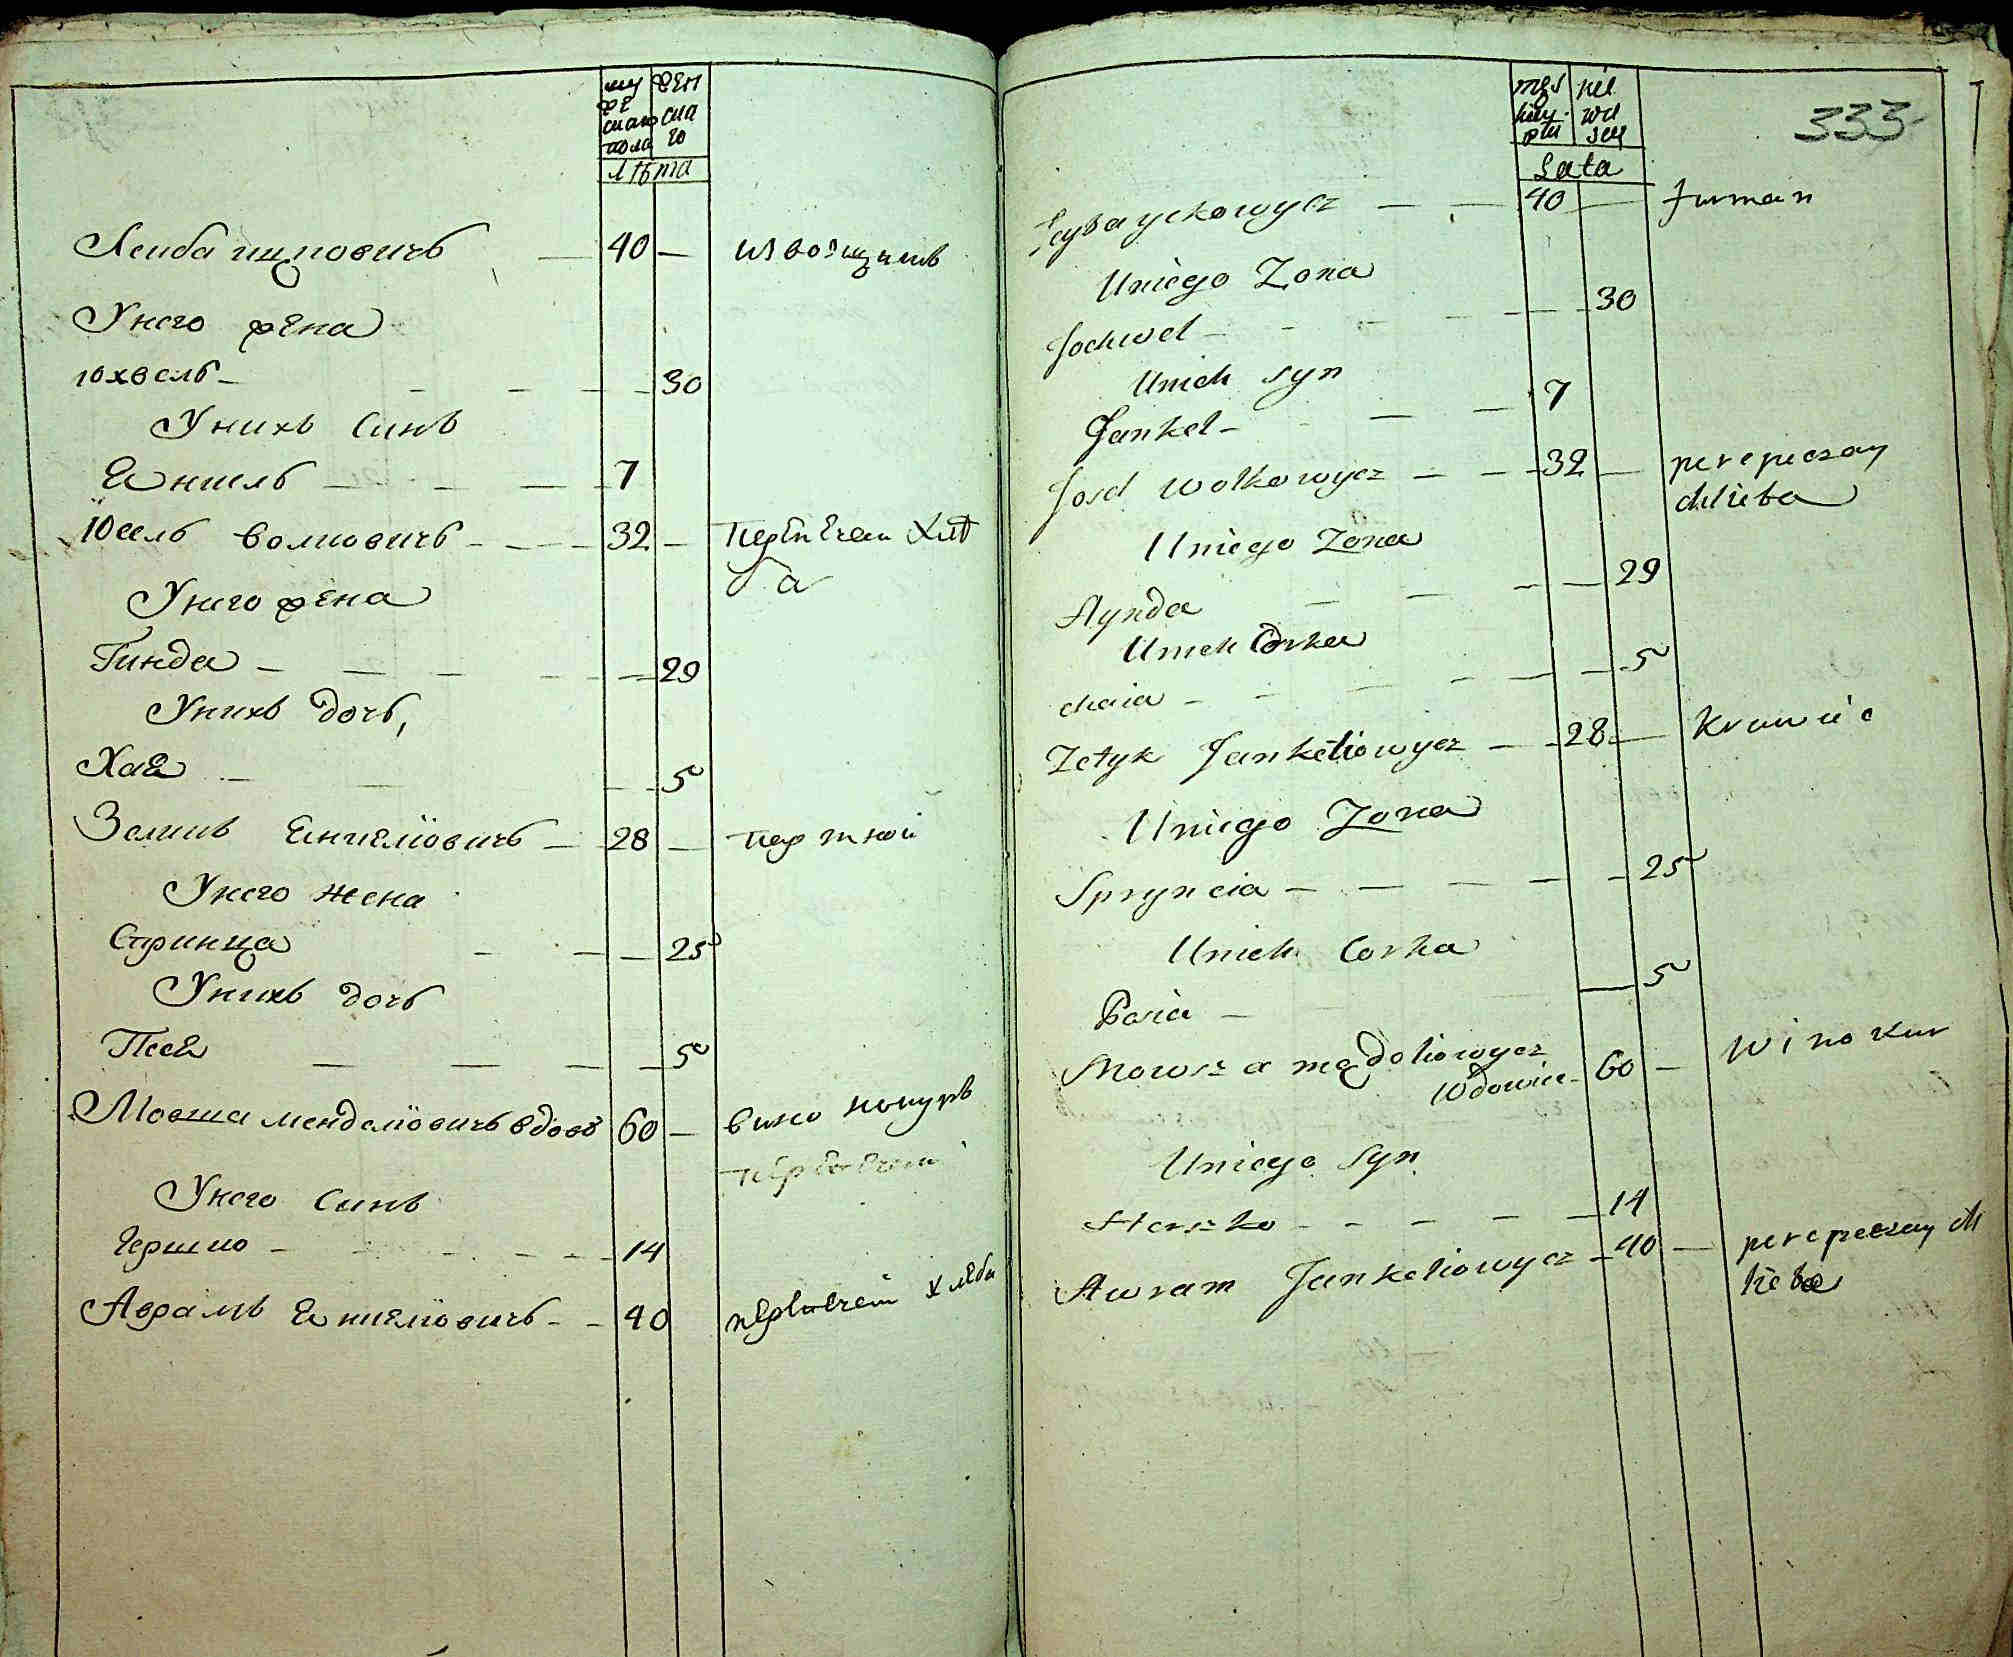 му же скаго пола
жен ска го
лѣта
Лейба ицковичъ — 40 — извозщикъ
У него жена
юхвель — — — — 30
У нихъ Синъ
Енкель — — — 7
Юсель волковичъ — — — 32 — перепечай хлѣ
ба
У него жена
Гинда — — — — — 29
У нихъ дочь,
Хае — — — 5
Зеликъ Енкелiовичъ — 28 — портной
У него жена
Спринца — — — 25
У нихъ дочь
Песе — — — — 5
Мовша менделiовичъ вдовъ 60 — вино кокуръ
У него Синъ
Гершко — — — — 14
Аврамъ Енкелiовичъ — — 40 перепечай хлеба
333
męs kiey płu
żeń
Lata
Icykowycz — — 40 — furman
Uniego Zona
Jochwel — — — — 30
Unich syn
Jankel — — — 7
Josel Wolkowycz — — 32 — perepeczay
chlieba
Uniego Zona
Hynda — — — — 29
Unich Corka
chaia — — — — 5
Zelyk Jankeliowycz — 28 — Krawiec
Uniego Zona
Spryncia — — — — 25
Unich Corka
Pesia — — 5
Mowsza mędeliowycz
Wdowiec 60 — Winokur
Uniego Syn
Herszko — — — — 14
Awram Jankeliowycz — 40 — perepeczay ch
lieba